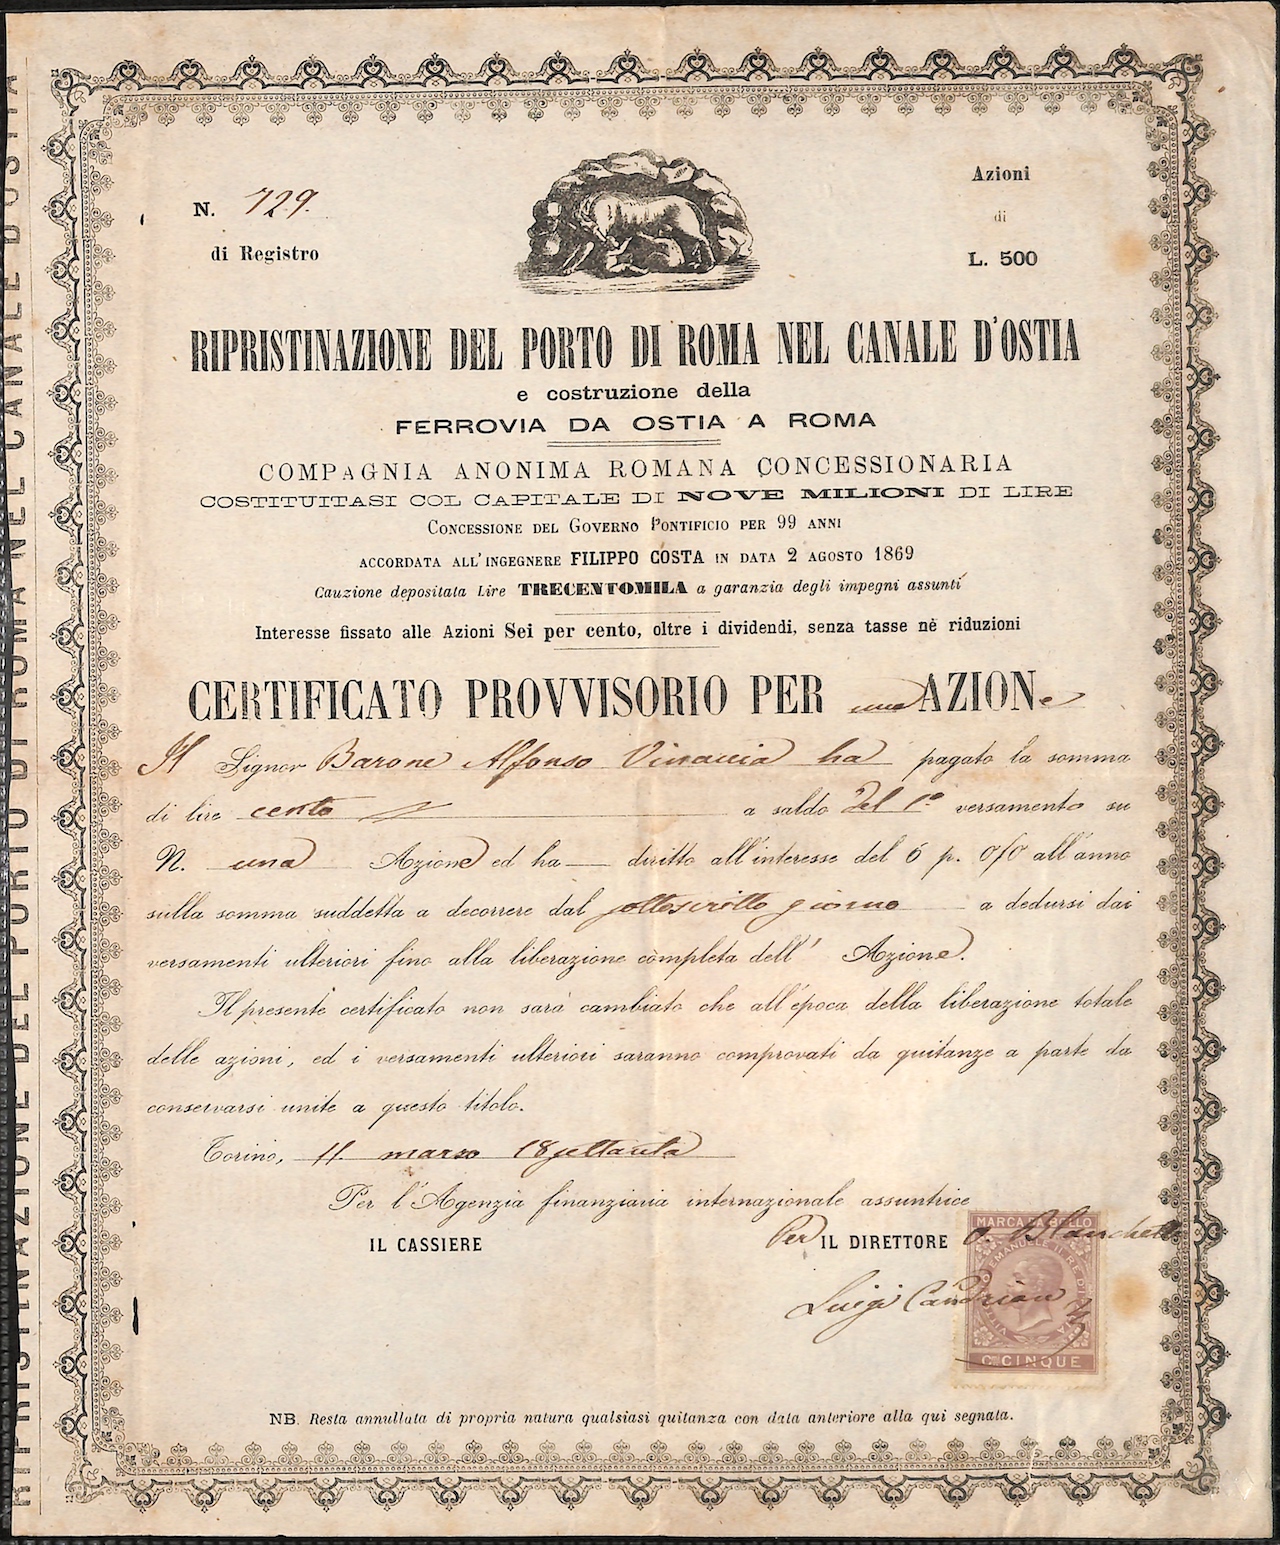 RIPRISTINAZIONE DEL PORTO DI ROMA NEL CANALE D'OSTIA
N. 729.
di Registro
Azioni
di
L. 500
RIPRISTINAZIONE DEL PORTO DI ROMA NEL CANALE D'OSTIA
e costruzione della
FERROVIA DA OSTIA A ROMA
COMPAGNIA ANONIMA ROMANA CONCESSIONARIA
COSTITUITASI COL CAPITALE DI NOVE MILIONI DI LIRE
CONCESSIONE DEL GOVERNO PONTIFICIO PER 99 ANNI
ACCORDATA ALL'INGEGNERE FILIPPO COSTA IN DATA 2 AGOSTO 1869
Cauzione depositata Lire TRECENTOMILA a garanzia degli impegni assunti
Interesse fissato alle Azioni Sei per cento, oltre i dividendi, senza tasse nè riduzioni
CERTIFICATO PROVVISORIO PER una AZIONe
Il Signor Barone Alfonso Vinaccia ha pagato la somma
di lire cento a saldo del 1° versamento su
N. una Azione ed ha diritto all'interesse del 6 p. 0/0 all'anno
sulla somma suddetta a decorrere dal sottoscritto giorno a dedursi dai
versamenti ulteriori fino alla liberazione completa dell' Azione.
Il presente certificato non sarà cambiato che all'epoca della liberazione totale
delle azioni, ed i versamenti ulteriori saranno comprovati da quitanze a parte da
conservarsi unite a questo titolo.
Torino, 11. marzo 18settanta
Per l'Agenzia finanziaria internazionale assuntrice
IL CASSIERE
Per IL DIRETTORE
Luigi
MARCA DA BOLLO
EMANUELE II RE D'ITALIA
C. CINQUE
NB. Resta annullata di propria natura qualsiasi quitanza con data anteriore alla qui segnata.